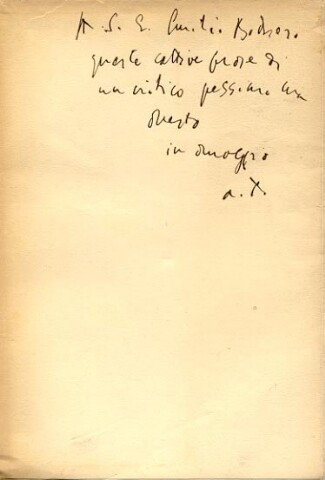 A S. E. Emilio Bodrero
queste cattive prose di
un critico pessimo ma
onesto
in omaggio
a. T.